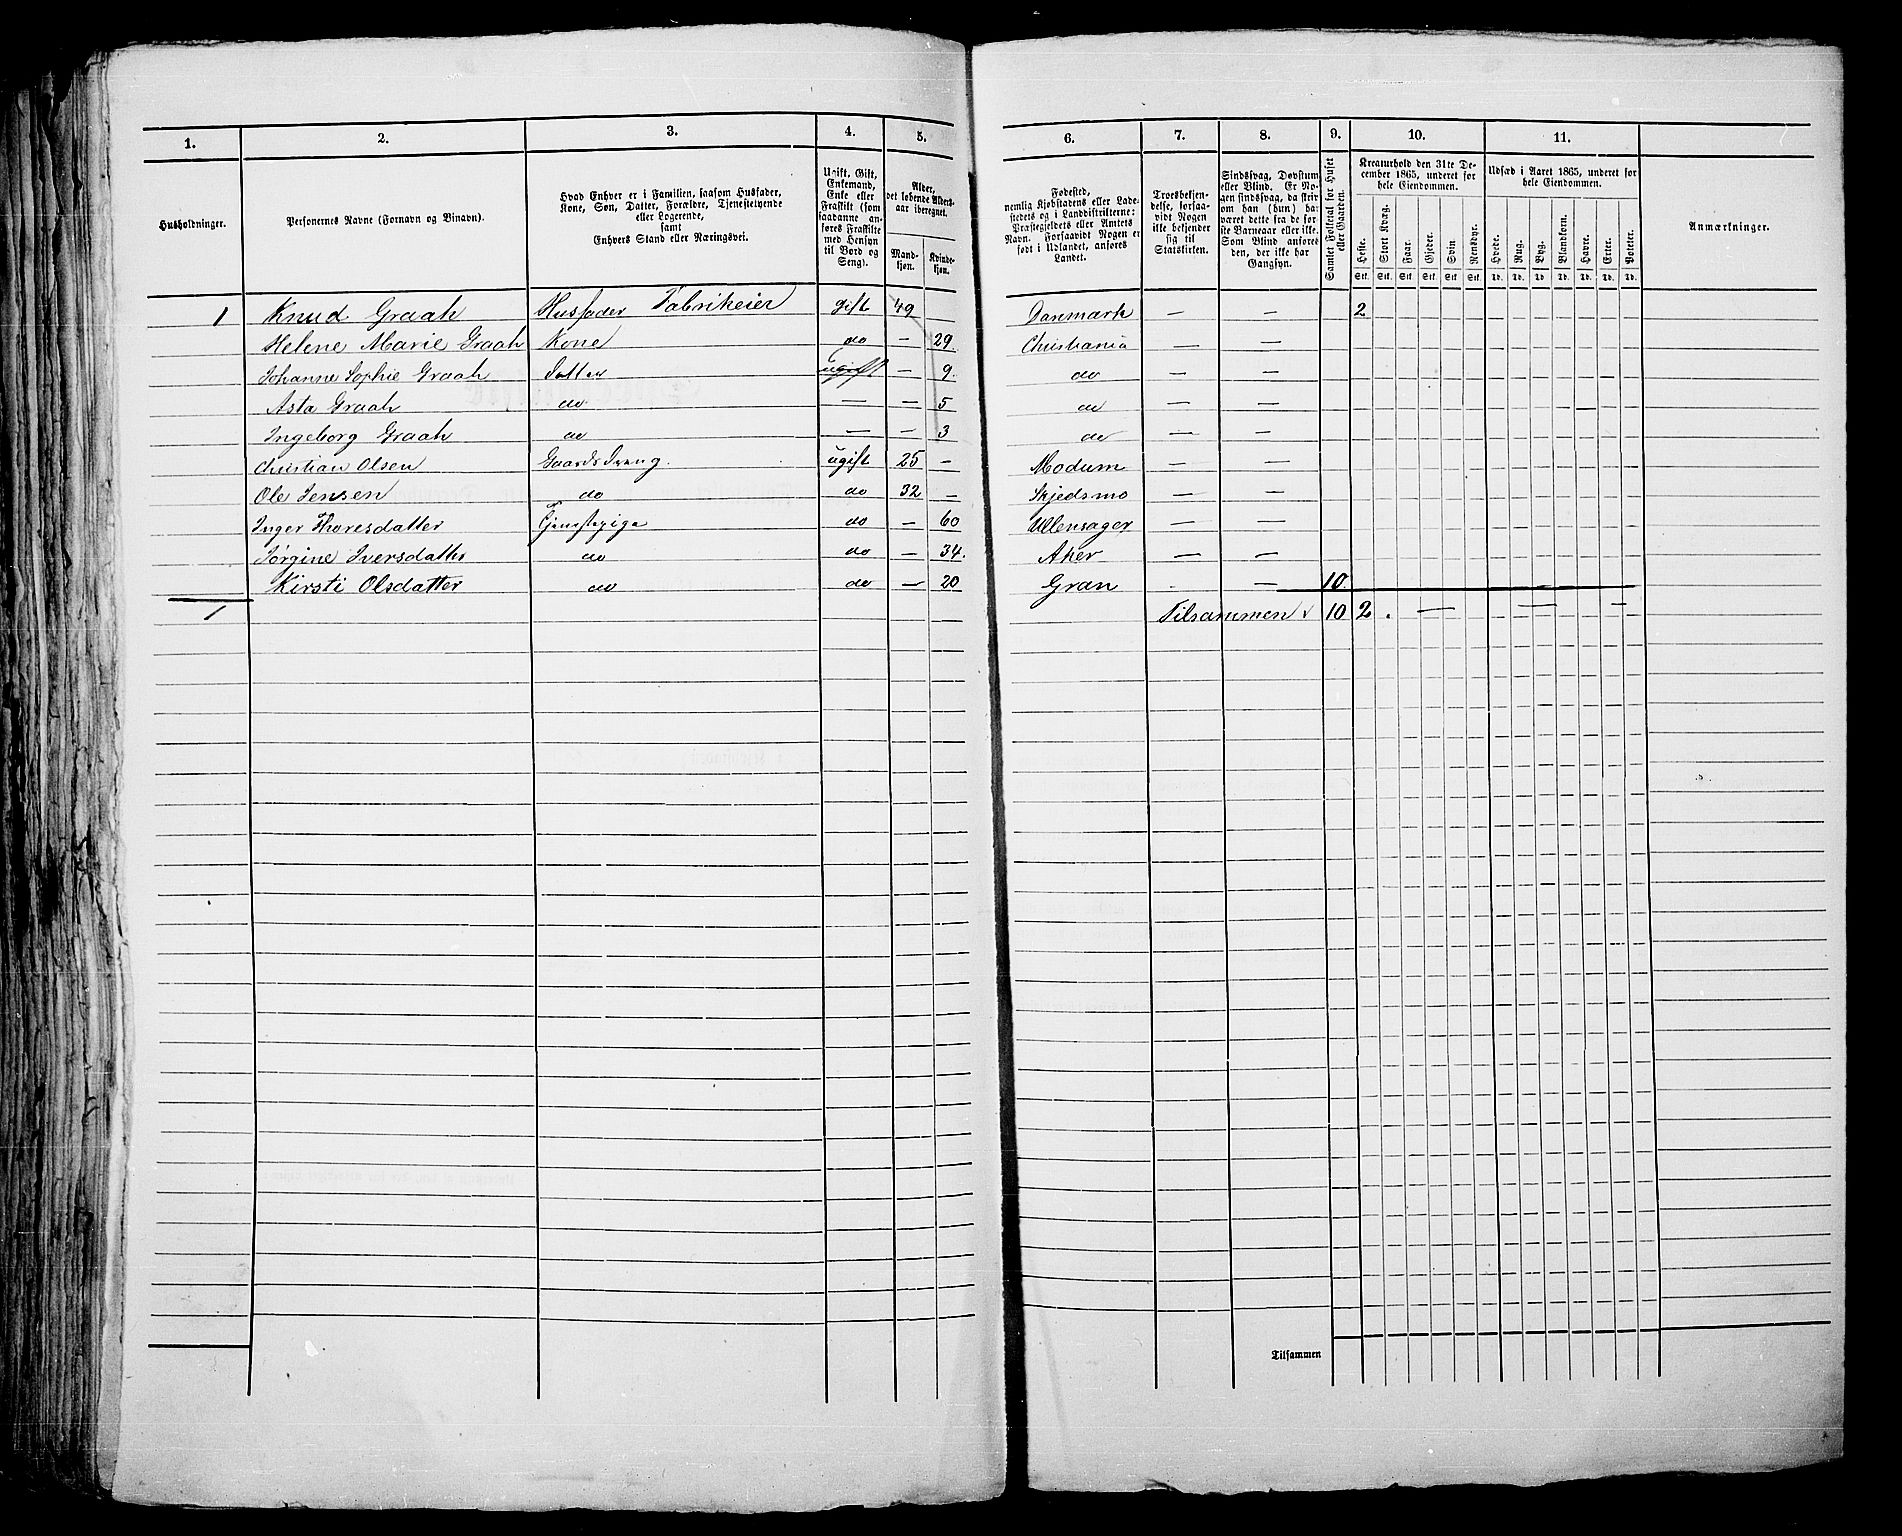 1. 2. 3. 4. 5. 6. 7. 8. 9. 10. 11.
Husholdninger.
Personernes Navne (Fornavn og Binavn).
Hvad Enhver er i Familien, saasom Husfader,
Kone, Søn, Datter, Forældre, Tjenestetyende
eller Logerende,
samt
Enhvers Stand eller Næringsvei.
Ugift, Gift,
Enkemand,
Enke eller
Fraskilt (som
saadanne an-
føres Fraskilte
med Hensyn
til Bord og
Seng).
Alder,
det løbende Alders-
aar iberegnet.
Mand-
kjøn.
Kvinde-
kjøn.
Fødested,
nemlig Kjøbstadens eller Lade-
stedets og i Landdistrikterne:
Præstegjeldets eller Amtets
Navn. Forsaavidt Nogen er
født i Udlandet, anføres
Landet.
Troesbekjen-
delse, forsaa-
vidt Nogen
ikke bekjender
sig til
Statskirken.
Sindssvag, Døvstum
eller Blind. Er No-
gen sindssvag, da skri-
ver man (hun) ha-
været dette fra de før-
ste Barneaar eller ikke.
Som Blind anføres
den, der ikke har
Gangsyn.
Samlet Folketal for Huset
eller Gaarden.
Kreaturhold den 31te De-
cember 1865, underet for
hele Eiendommen.
Heste. Stort Kvæg. Faar. Gjeder. Svin Rensdyr.
Stk. Stk. Stk. Stk. Stk. Stk.
Udsæd i Aaret 1865, underet for
hele Eiendommen.
Hvede. Rug. Byg. Blandkorn. Havre. Erter. Poteter.
Td. Td. Td. Td. Td. Td. Td.
Anmærkninger.
1 Knud Graah Husfader Fabrikeier gift 49 Danmark — — 2
Helene Marie Graah Kone do — 29. Christiania — —
Johanne Sophie Graah Datter ugift — 9. do — —
Asta Graah do — — 5 do — —
Ingeborg Graah do — — 3 do — —
Christian Olsen Gaardsdreng. ugift 25 — Modum — —
Ole Jensen do do 32 — Skjedsmo — —
Inger Thoresdatter Tjenestepige do — 60 Ullensager — —
Jørgine Iversdatter do do — 34. Aker — —
Kirsti Olsdatter do do — 20 Gran — 10
1 Tilsammen 10 2 — — —
Tilsammen